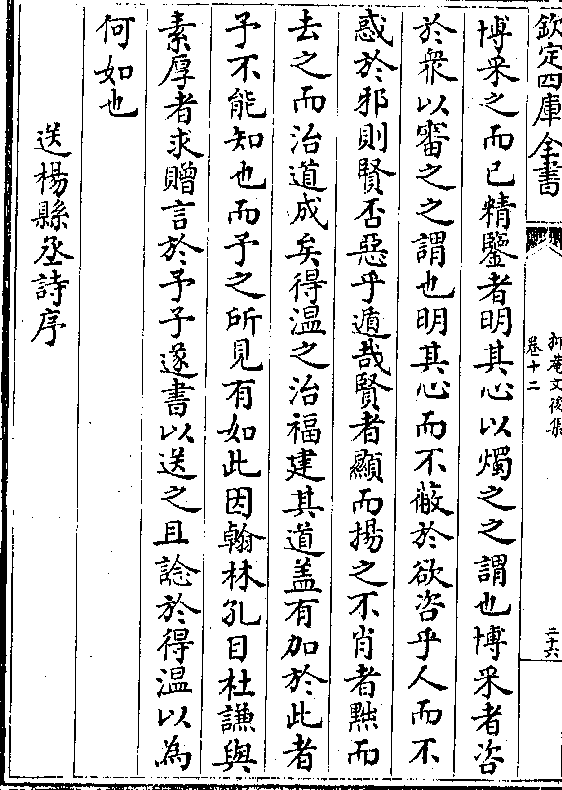 欽定四庫全書
抑菴文後集
卷十二
二十六
博采之而已精鑒者明其心以燭之之謂也博采者咨
於衆以審之之謂也明其心而不蔽於欲咨乎人而不
惑於邪則賢否惡乎遁哉賢者顯而揚之不肖者黜而
去之而治道成矣得温之治福建其道盖有加於此者
予不能知也而予之所見有如此因翰林孔目杜謙與
素厚者求贈言於予予遂書以送之且諗於得温以為
何如也
送楊縣丞詩序